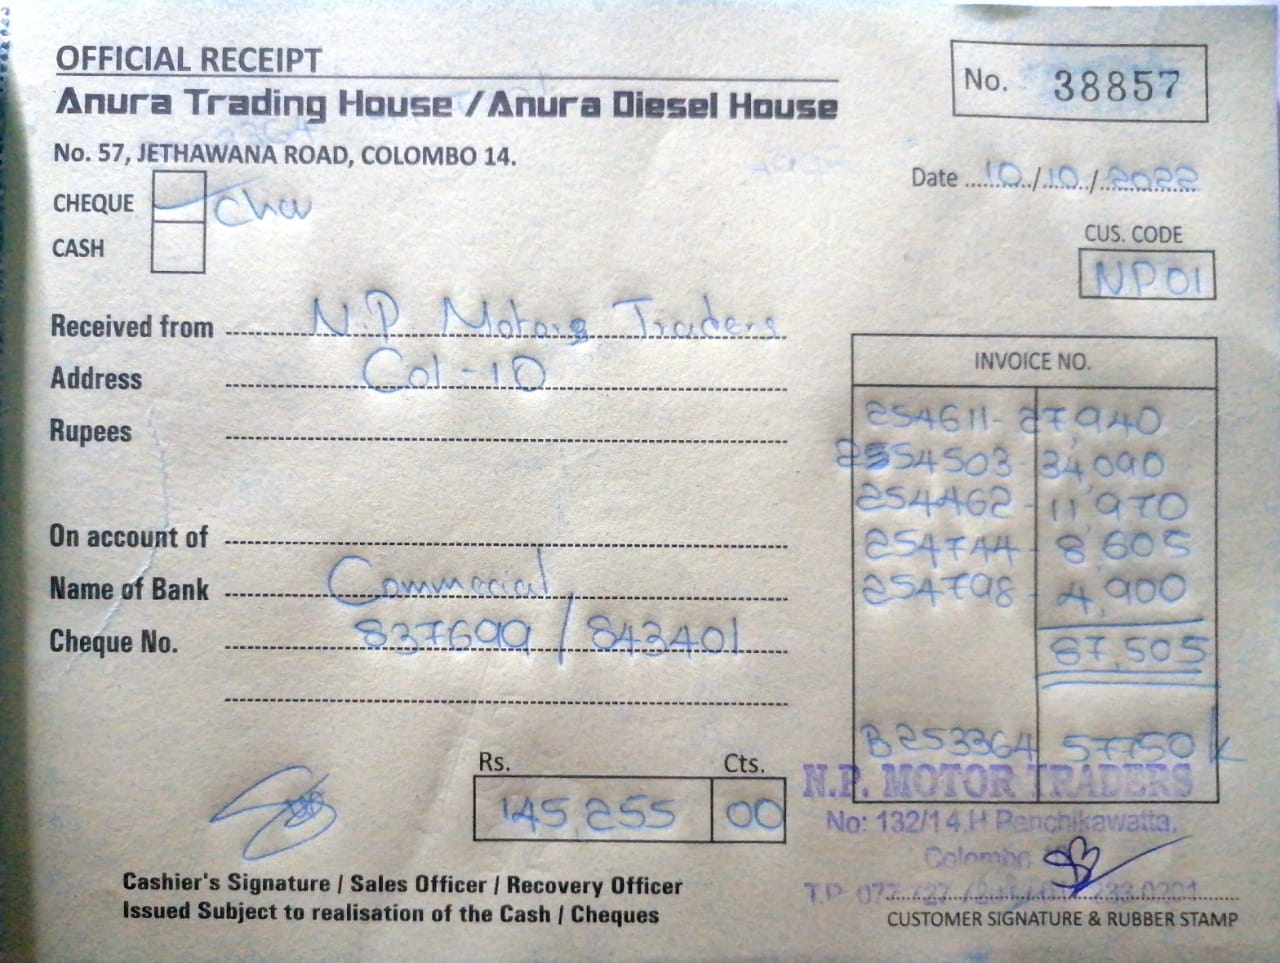 OFFICIAL RECEIPT
No. 38857
Anura Trading House / Anura Diesel House
No. 57, JETHAWANA ROAD, COLOMBO 14.
Date 10/10/2022
CHEQUE
CASH
CUS. CODE
NP01
Received from N.P. Motors Traders
Address Col-10
Rupees
On account of
Name of Bank Commercial
Cheque No. 837699 / 843401
INVOICE NO.
254611- 27,940
2554503- 34,090
254462- 11,970
254744- 8,605
254798- 4,900
87,505
B253364 57750
Rs. Cts.
145,255 00
N.P. MOTOR TRADERS
No: 132/14,H Panchikawatta,
Colombo
Cashier's Signature / Sales Officer / Recovery Officer
Issued Subject to realisation of the Cash / Cheques
CUSTOMER SIGNATURE & RUBBER STAMP